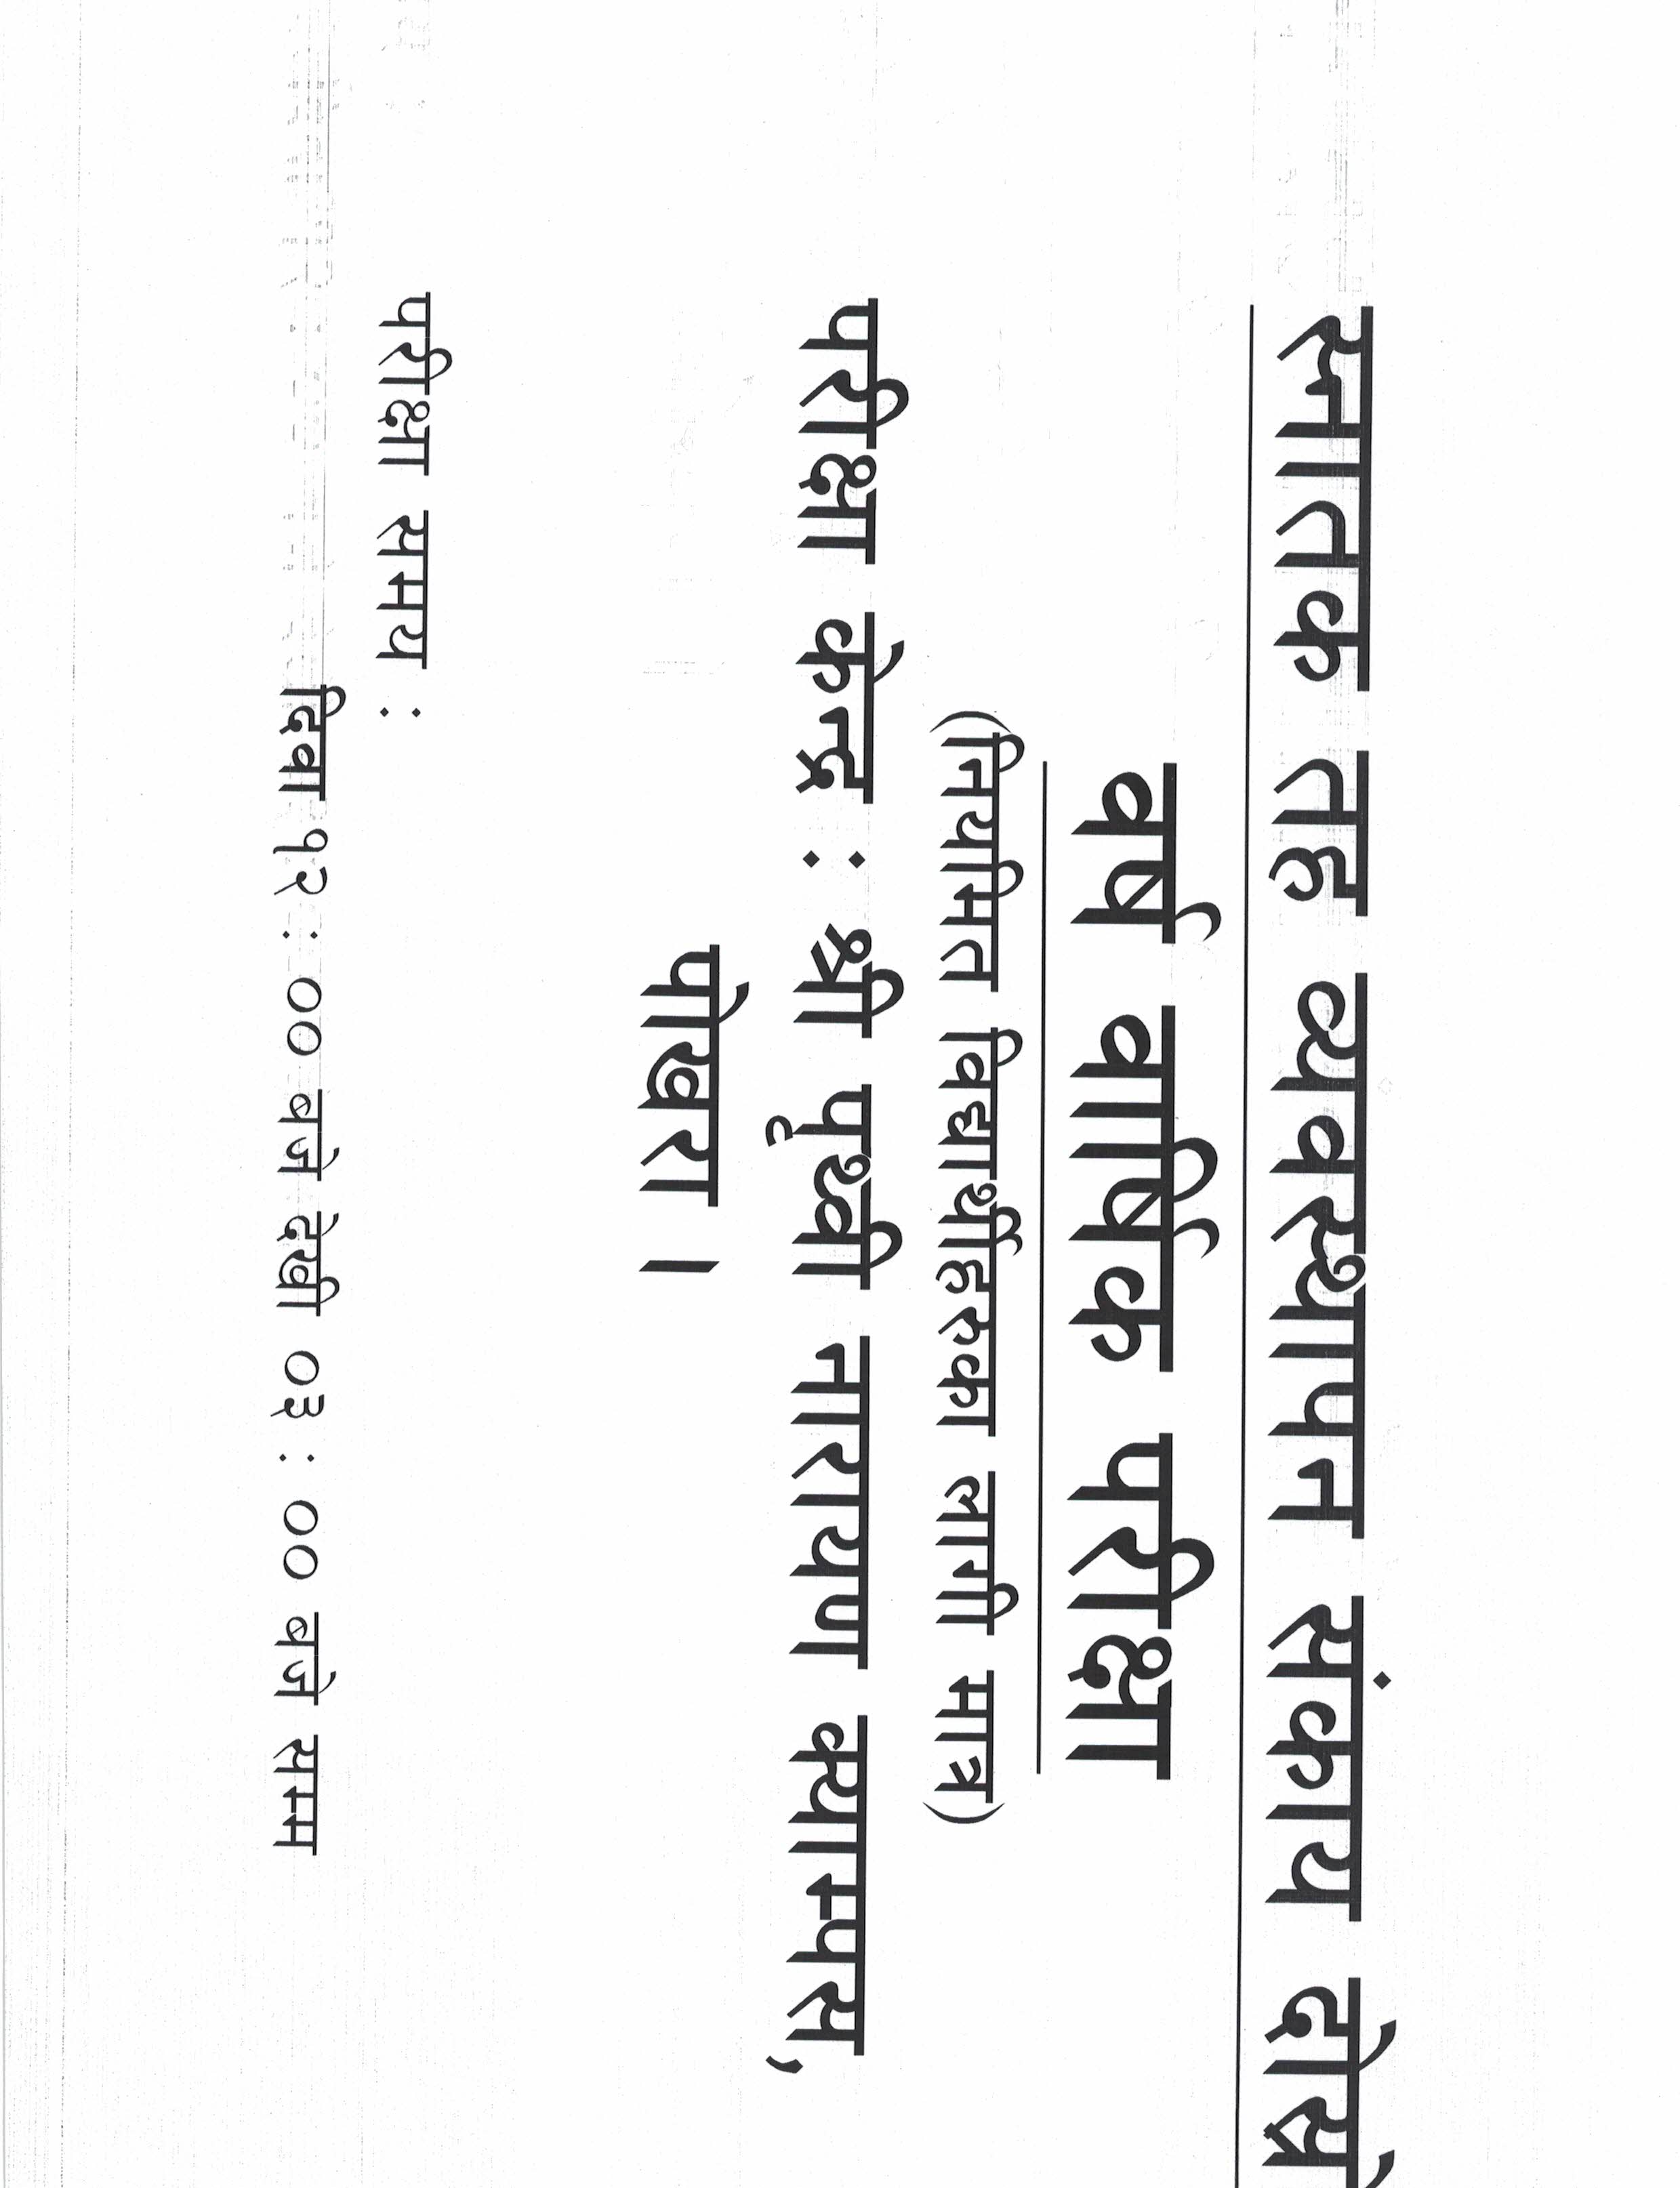 स्नातक तह व्यवस्थापन संकाय दोस्रो
वर्ष वार्षिक परीक्षा
(नियमित विद्यार्थीहरुका लागी मात्र)
परीक्षा केन्द्र : श्री पृथ्वी नारायण क्याम्पस,
पोखरा ।
परीक्षा समय :
दिवा १२ : ०० बजे देखी ०३ : ०० बजे सम्म